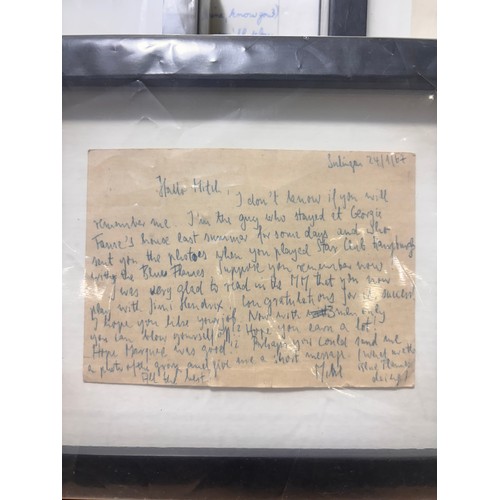 know
24/1/67
Hallo Mitch,
I don't know if you will
remember me. I'm the guy who stayed at Georgie
Fame's house last summer for some days and who
sent you the photoes when you played Star Club Hamburg
with the Blue Flames. Suppose you remember now.
I was very glad to read in the MM that you now
play with Jimi Hendrix. Congratulations for the success
I hope you like your job. Now with 3 men only
you can blow yourself off! Hope you earn a lot.
Hope Marquee was good! Perhaps you could send me
a photo of the group and give me a short message (what with
Blue Flames
All the best
doing)